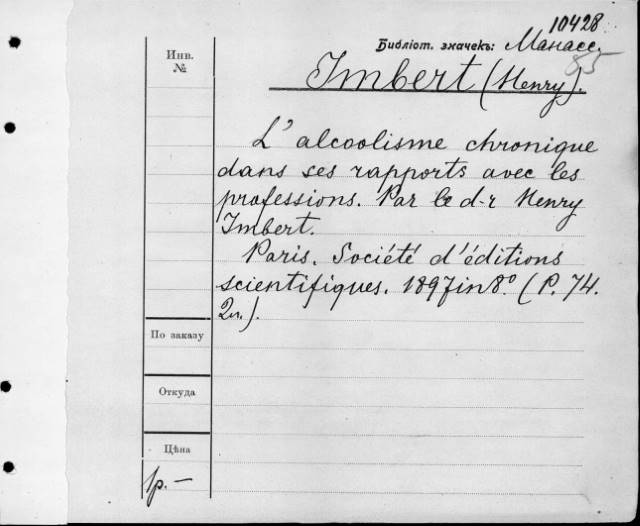 10428
Библіот. значекъ: Манасс.
85
Инв.
№
Imbert (Henry).
L'alcoolisme chronique
dans ses rapports avec les
professions. Par le d-r Henry
Imbert.
Paris. Société d'éditions
scientifiques. 1897 in 8° (P. 74.
2 n.).
По заказу
Откуда
Цѣна
1р.—